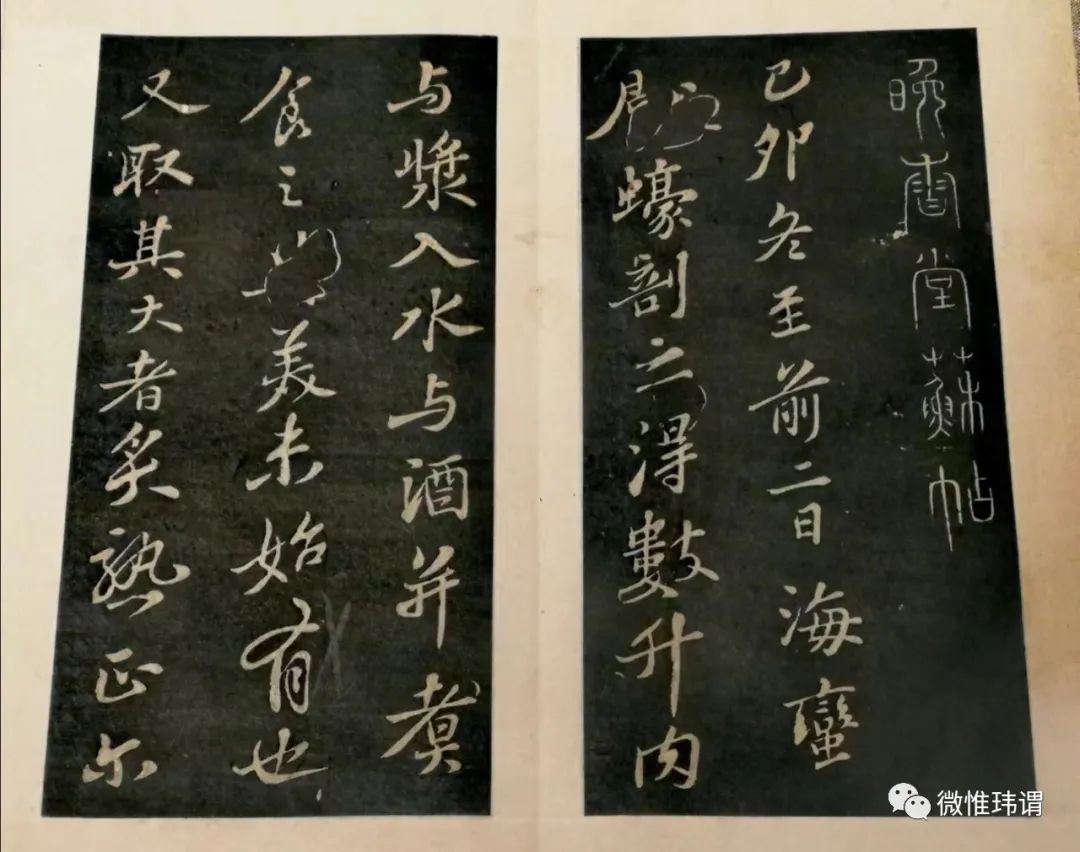 晚香堂蘇帖
己卯冬至前二日海蠻
蠔剖之得數升肉
与漿入水与酒并煮
食之美未始有也
又取其大者炙熟正尔
微惟玮谓